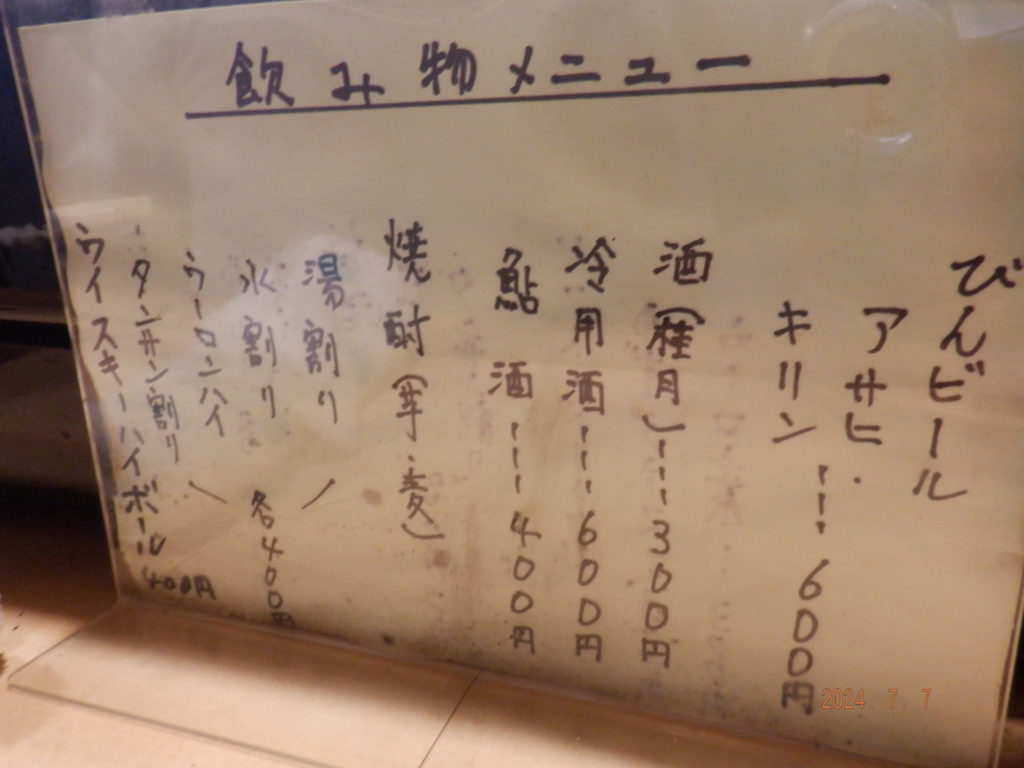 飲み物メニュー
びんビール
アサヒ・
キリン---600円
酒(雅月)---300円
冷用酒---600円
鮎酒---400円
焼酎(芋・麦)
湯割り
水割り
ウーロンハイ
タンサン割り
各400円
ウイスキーハイボール
400円
2024. 7. 7